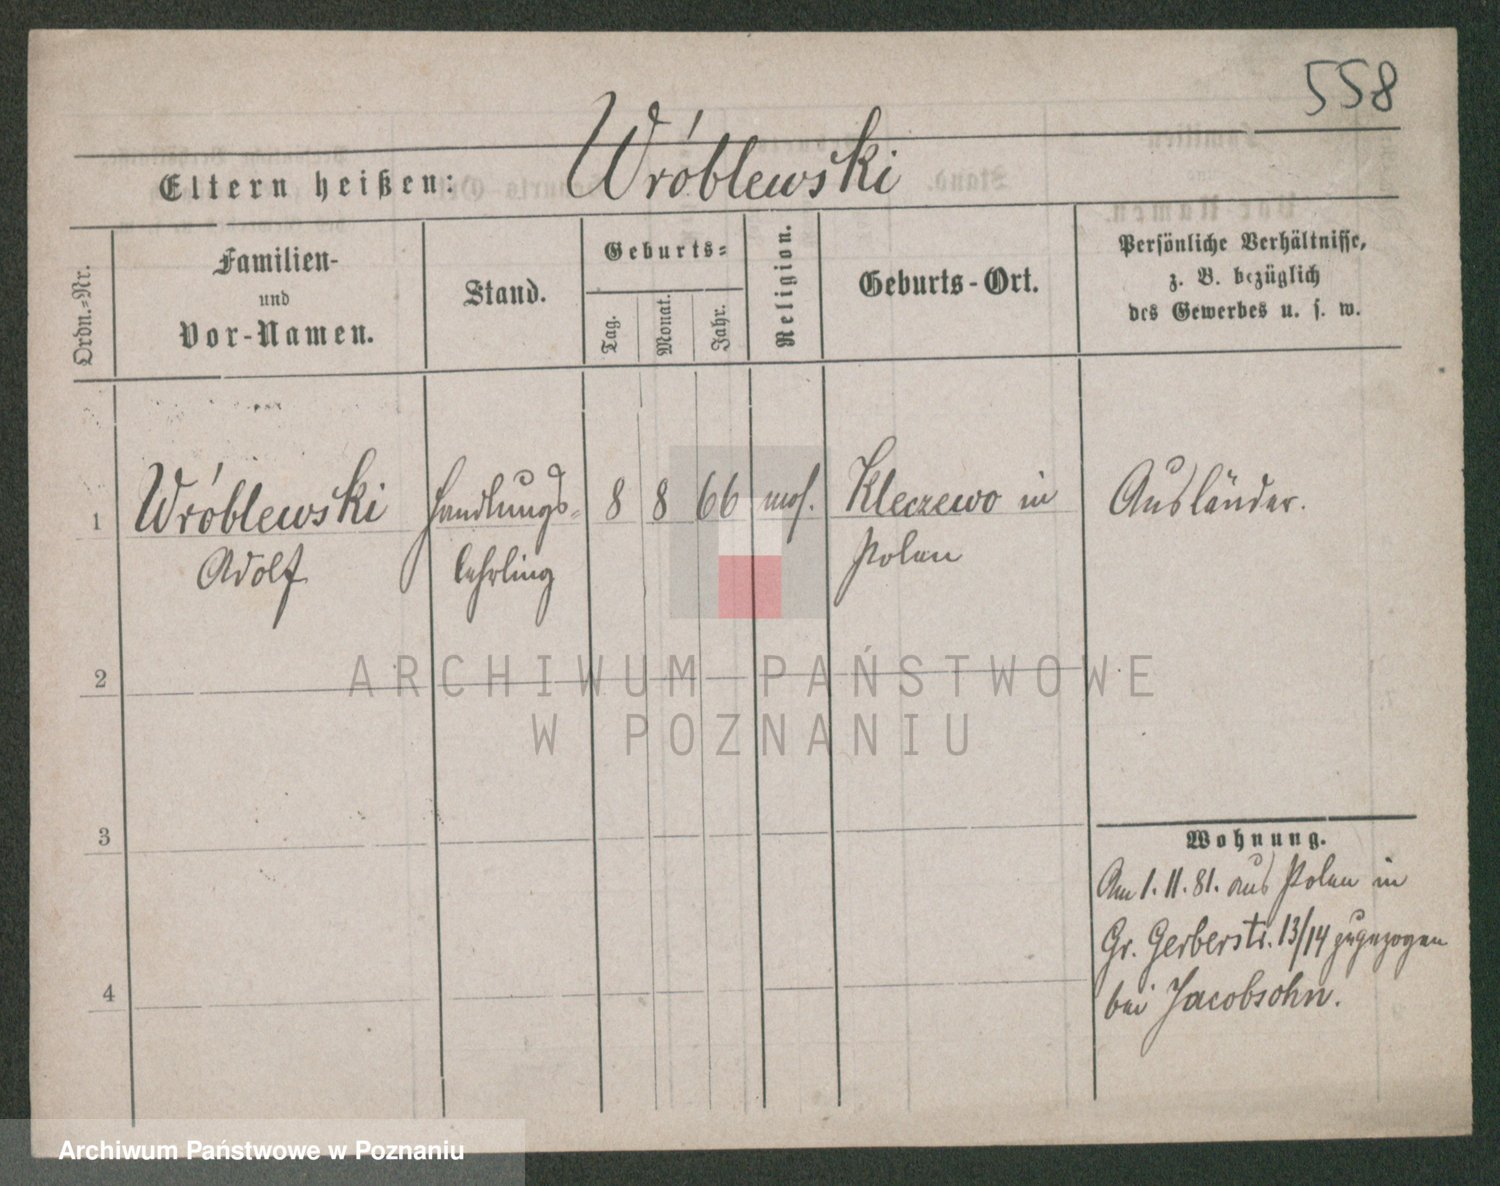 558
Eltern heißen: Wróblewski
Ordn.-Nr.
Familien-
und
Vor-Namen.
Stand.
Geburts-
Tag.
Monat.
Jahr.
Religion.
Geburts-Ort.
Persönliche Verhältnisse,
z. B. bezüglich
des Gewerbes u. s. w.
1 Wróblewski Handlungs- 8 8 66 mos. Kleczewo in Ausländer.
Adolf lehrling Polen
2
ARCHIWUM PAŃSTWOWE
W POZNANIU
3
Wohnung.
Am 1. 11. 81. aus Polen in
Gr. Gerberstr. 13/14 zugezogen
bei Jacobsohn.
4
Archiwum Państwowe w Poznaniu